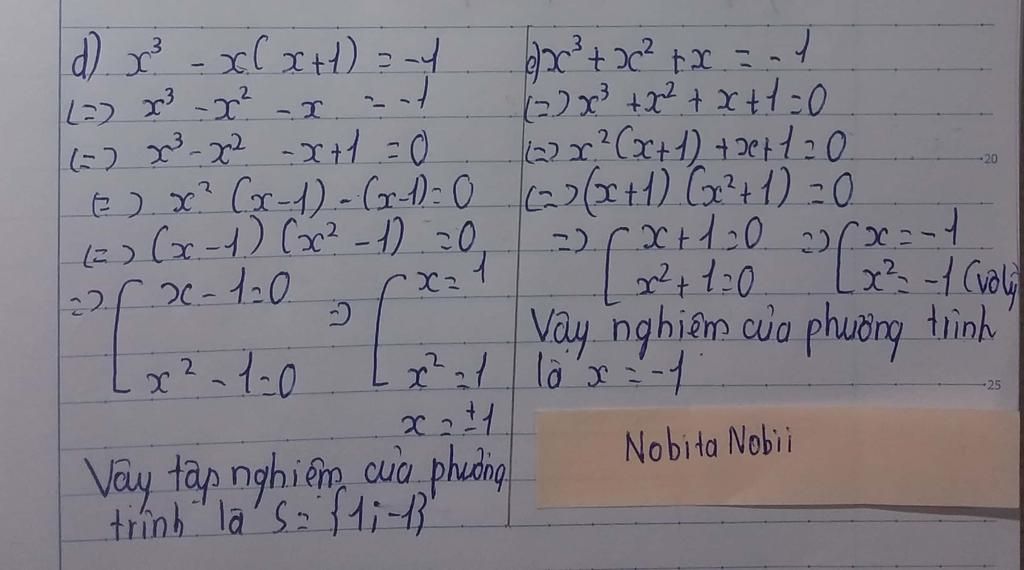 d) x³ - x(x+1) = -1
(=) x³ - x² - x = -1
(=) x³ - x² - x+1 = 0
(=) x² (x-1) - (x-1) = 0
(=) (x-1) (x² -1) = 0
=> [ x - 1 = 0 => [ x = 1
x² - 1 = 0 x² = 1
x = ±1
Vậy tập nghiệm của phương
trình là S = {1; -1}
e) x³ + x² + x = -1
(=) x³ + x² + x + 1 = 0
(=) x² (x+1) + x+1 = 0
(=) (x+1) (x²+1) = 0
=> [ x + 1 = 0 => [ x = -1
x² + 1 = 0 x² = -1 (vô lý)
Vậy nghiệm của phương trình
là x = -1
Nobita Nobii
20
25